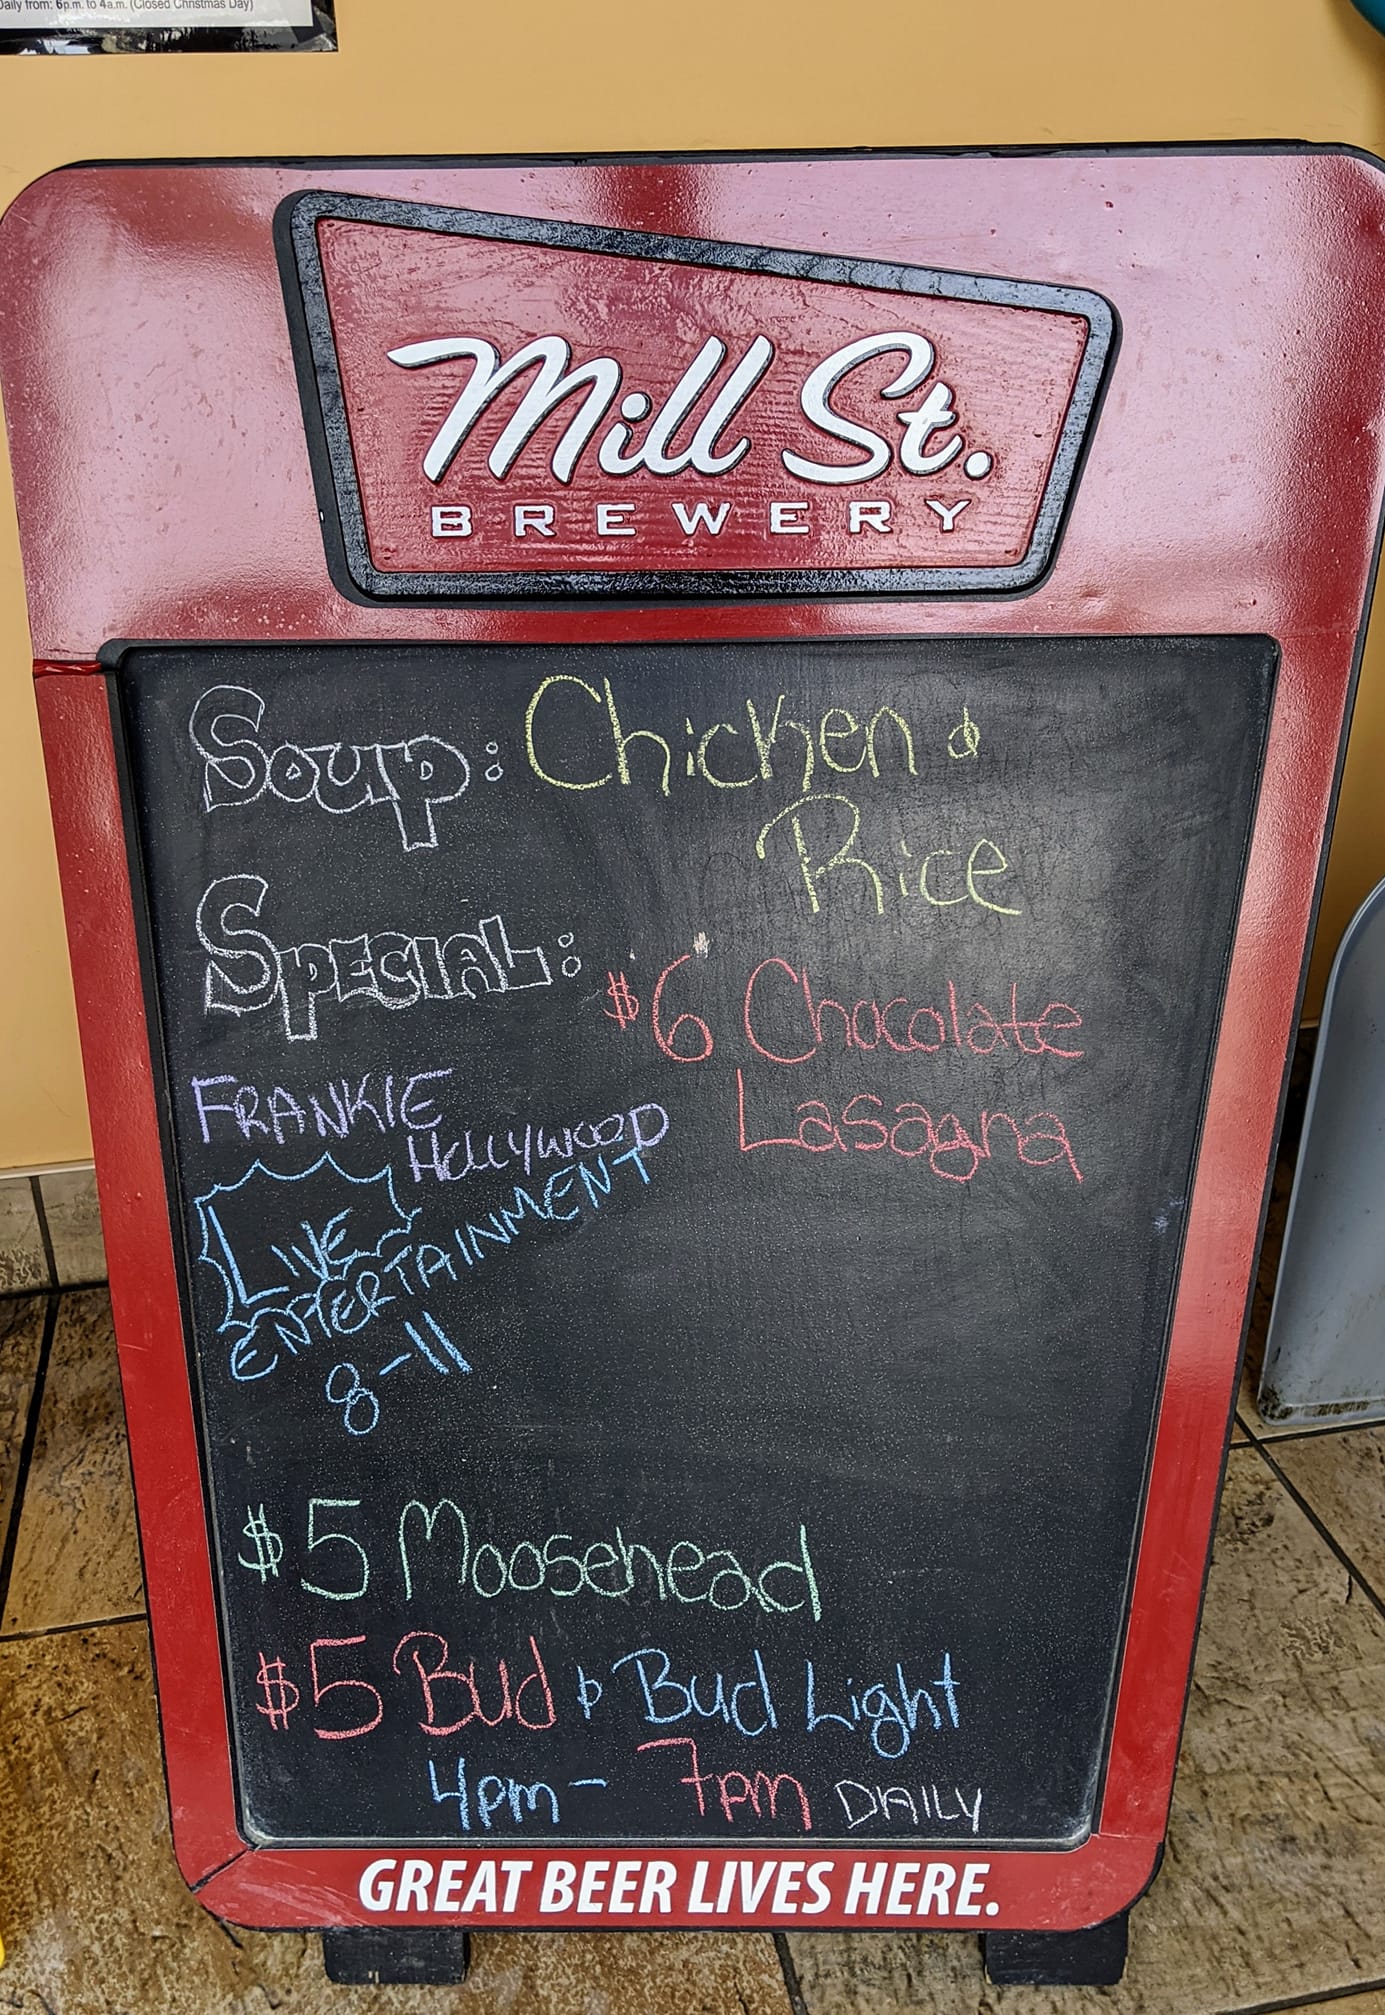 Daily from: 6p.m. to 4a.m. (Closed Christmas Day)
Mill St.
BREWERY
Soup: Chicken &
Rice
SPECIAL: $6 Chocolate
Lasagna
FRANKIE
HOLLYWOOD
LIVE
ENTERTAINMENT
8-11
$5 Moosehead
$5 Bud & Bud Light
4pm - 7pm DAILY
GREAT BEER LIVES HERE.